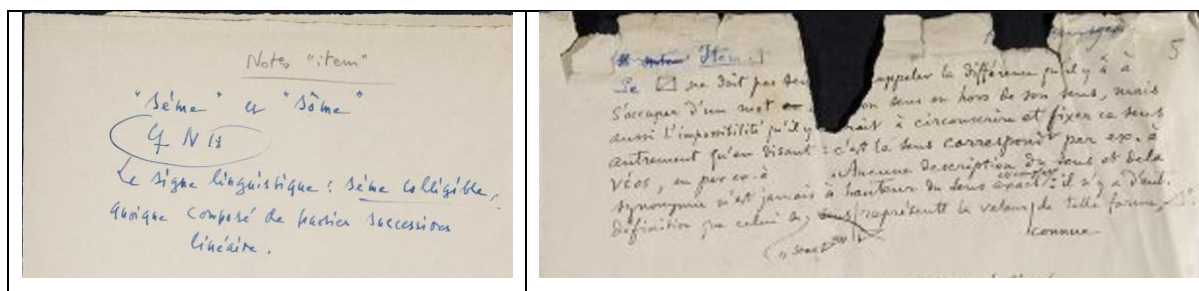 Notes "item"
"Sème" et "Sôme"
Cf N 18
Le signe linguistique : sème colligible,
quoique composé de parties successives
linéaire.
5
Item.
Le ne doit pas seu appeler la différence qu'il y a à
s'occuper d'un mot on sens en hors de son sens, mais
aussi l'impossibilité qu'il y rait à circonscrire et fixer ce sens
autrement qu'en disant : c'est le sens correspondt par ex. à
véos, ou par ex. à . Aucune description du sens et de la
synonymie n'est jamais à hauteur du sens exact : il n'y a d'aut.
définition que celui représentt la valeur de telle forme,
connue